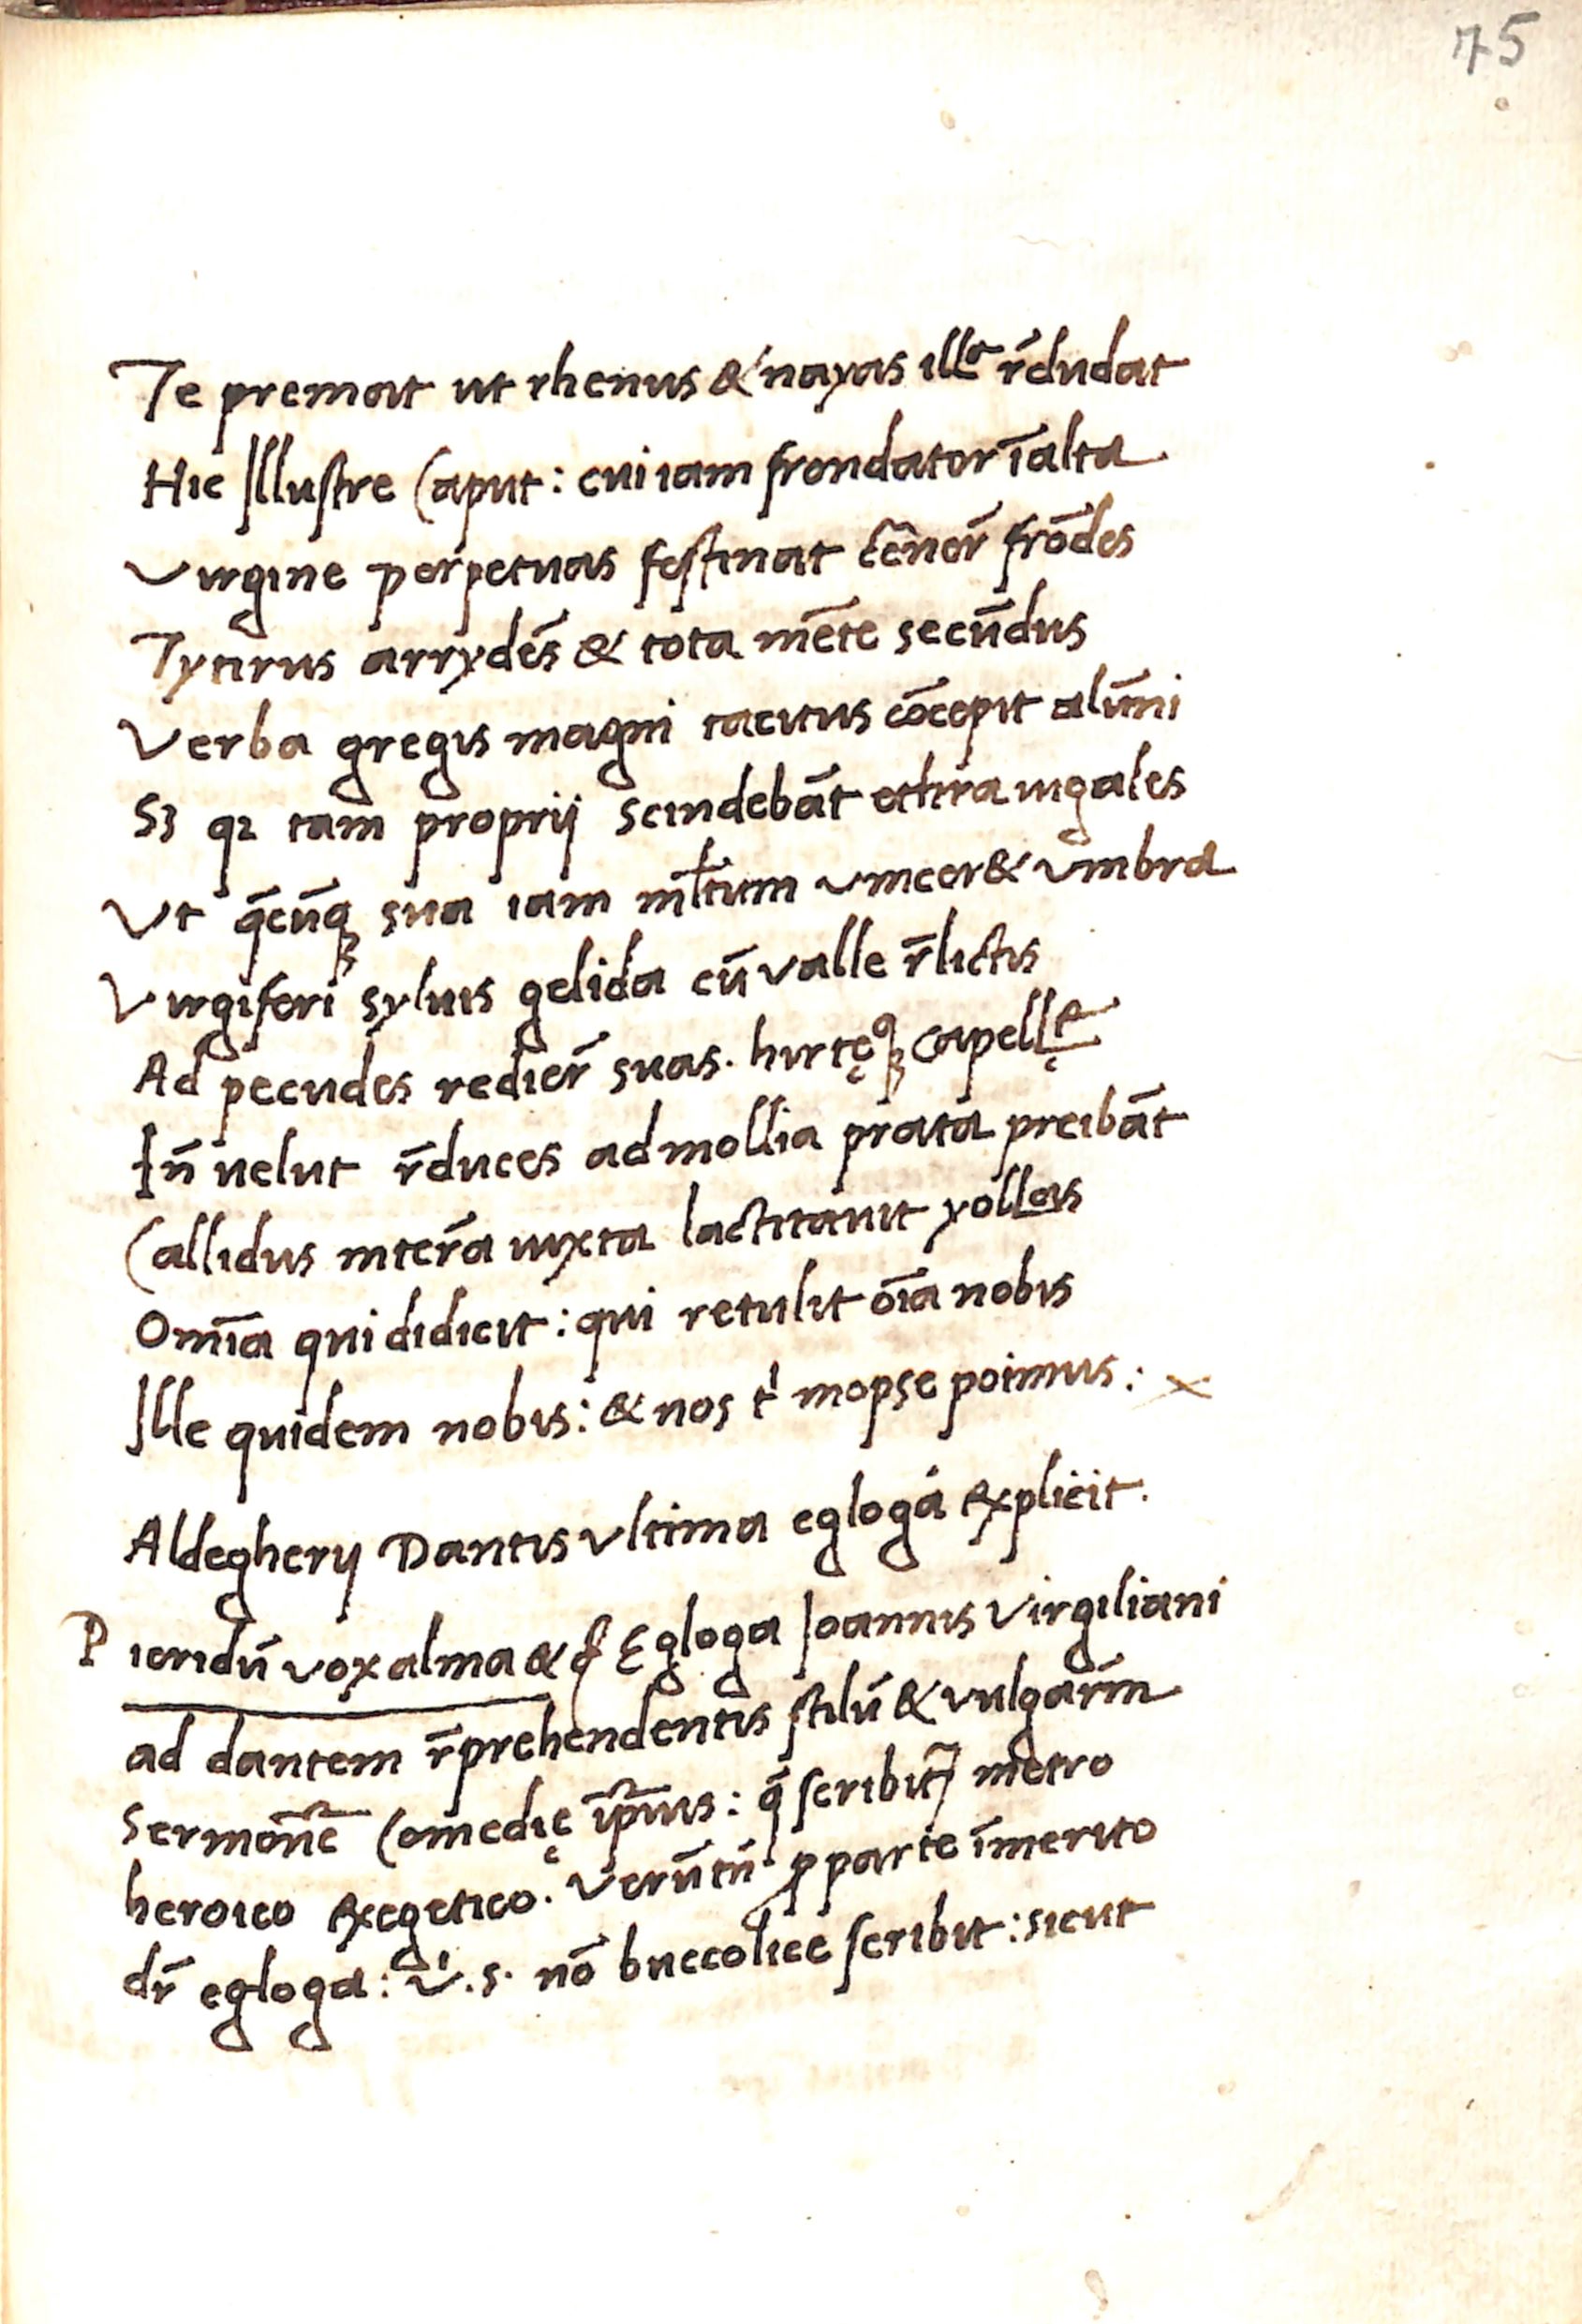 75
Te premat ut rhenus & nayas illa r̄dudat
Hic Illustre Caput: cui iam frondator ī alta
Virgine perpetuas festinat cēner̄ frōdes
Tytirus arrydēs & tota mēte secūdus
Verba gregis magni tacitus cōcepit alūni
Sꝫ qꝛ tam proprij scindebāt ethra iugales
Vt q̄cūqꝫ sua iam mł̄tum vincer& vmbra
Virgiferi syluis gelida cū valle r̄lictis
Ad pecudes redier̄ suas. hirtęqꝫ capellę
In̄ uelut r̄duces ad mollia prata preibāt
Callidus interā iuxta lactitauit yollas
Omīa qui didicit: qui retulit oīa nobis
Ille quidem nobis: & nos tⁱ mopse poimus:
Aldegherij Dantis vltima egloga explicit.
Pieridū vox alma & c̄ Egloga Ioannis Virgiliani
ad dantem r̄prehendentis stilū & vulgarīm
Sermonē̄ Comedię ip̄ius: q̄ scribit᷑ metro
heroico exegetico. Verūtn̄ ꝓ parte īmerito
dr̄ egloga: vⁱ. s. nō buccolice scribit: sicut